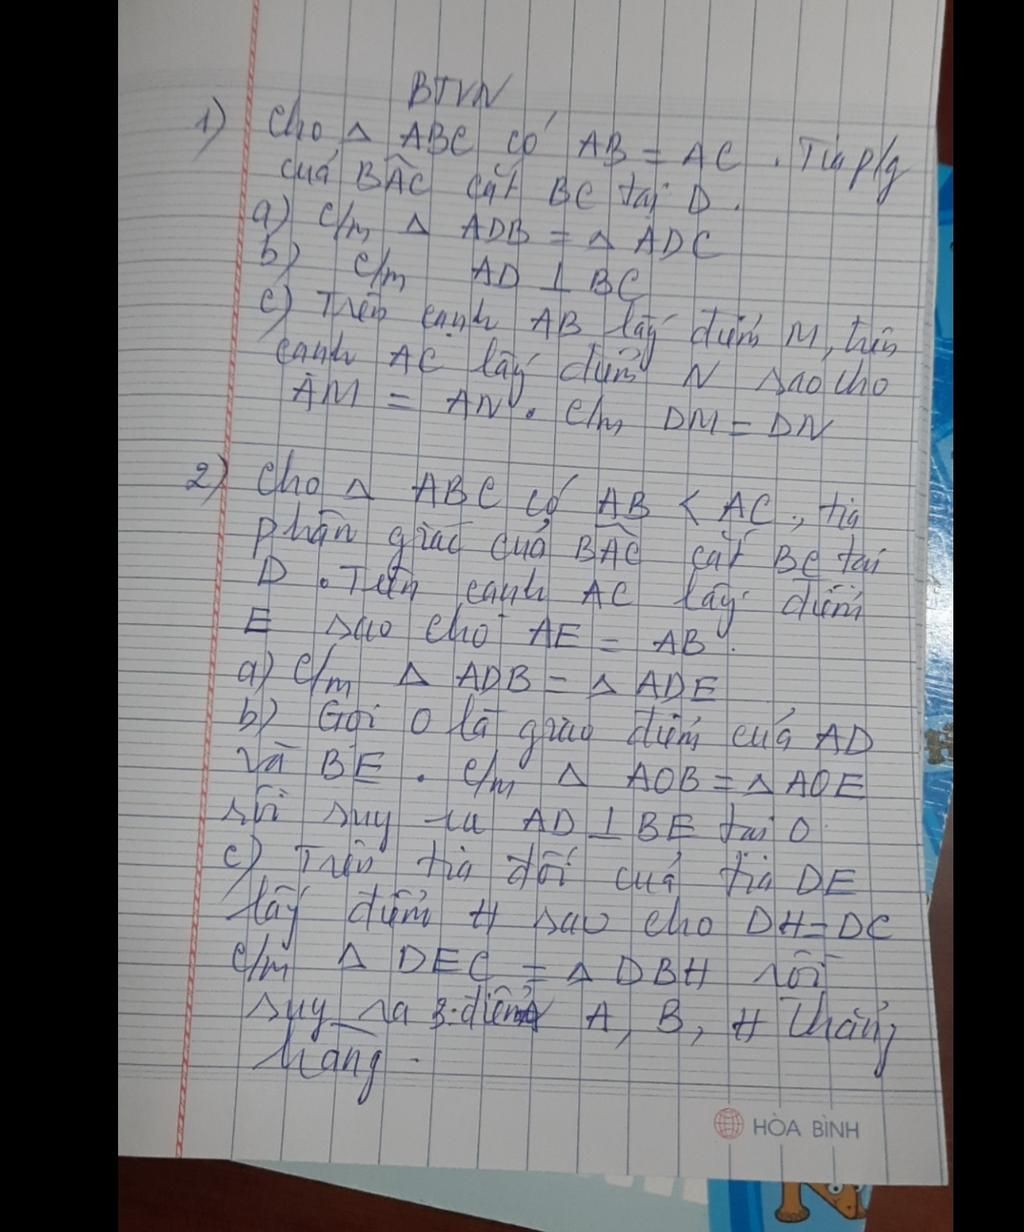 BTVN
1) Cho △ ABC có AB = AC . Tia p/g
của BÂC cắt BC tại D .
a) C/m △ ADB = △ ADC
b) C/m AD ⊥ BC
c) Trên cạnh AB lấy điểm M, trên
cạnh AC lấy điểm N sao cho
AM = AN . C/m DM = DN
2) Cho △ ABC có AB < AC , tia
phân giác của BÂC cắt BC tại
D . Trên cạnh AC lấy điểm
E sao cho AE = AB .
a) C/m △ ADB = △ ADE
b) Gọi O là giao điểm của AD
và BE . C/m △ AOB = △ AOE
rồi suy ra AD ⊥ BE tại O
c) Trên tia đối của tia DE
lấy điểm H sao cho DH = DC
C/m △ DEC = △ DBH rồi
suy ra 3 điểm A, B, H thẳng
hàng .
HÒA BÌNH